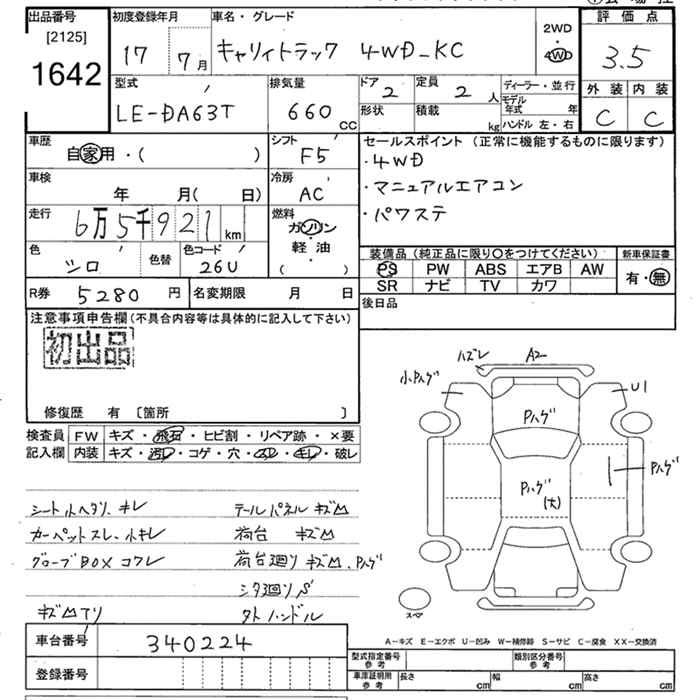 出品番号
[2125]
1642
初度登録年月
17 7月
車名・グレード
キャリィトラック 4WD_KC
2WD
4WD
評価点
3.5
外装 内装
C C
型式
LE-DA63T
排気量
660 CC
ドア 2
形状
定員 2 人
積載 kg
ディーラー・並行
モデル年式 年
ハンドル 左・右
車歴
自家用・( )
シフト
F5
車検
年 月( 日)
冷房
AC
走行
6万5千921 km
燃料
ガソリン
軽・油
( )
色
シロ
色替
色コード
26U
R券 5280 円
名変期限 月 日
セールスポイント (正常に機能するものに限ります)
・4WD
・マニュアルエアコン
・パワステ
装備品 (純正品に限り○をつけてください)
PS PW ABS エアB AW
SR ナビ TV カワ
新車保証書
有・無
後日品
注意事項申告欄(不具合内容等は具体的に記入して下さい)
初出品
修復歴 有 〔箇所 〕
検査員記入欄
FW キズ・飛石・ヒビ割・リペア跡・×要
内装 キズ・汚レ・コゲ・穴・スレ・キレ・破レ
シート小ヘタリ、キレ
カーペットスレ、小キレ
グローブBOXコワレ
テールパネル キズ凹
荷台 キズ凹
荷台廻り キズ凹、Pハゲ
シタ廻りパ
外トハンドル
ハズレ
A2
小Pハゲ
U1
Pハゲ
Pハゲ
(大)
Pハゲ
スペア
A－キズ E－エクボ U－凹み W－補修跡 S－サビ C－腐食 XX－交換済
車台番号 340224
登録番号
型式指定番号 参考
類別区分番号 参考
車庫証明用 参考
長さ cm 幅 cm 高さ cm